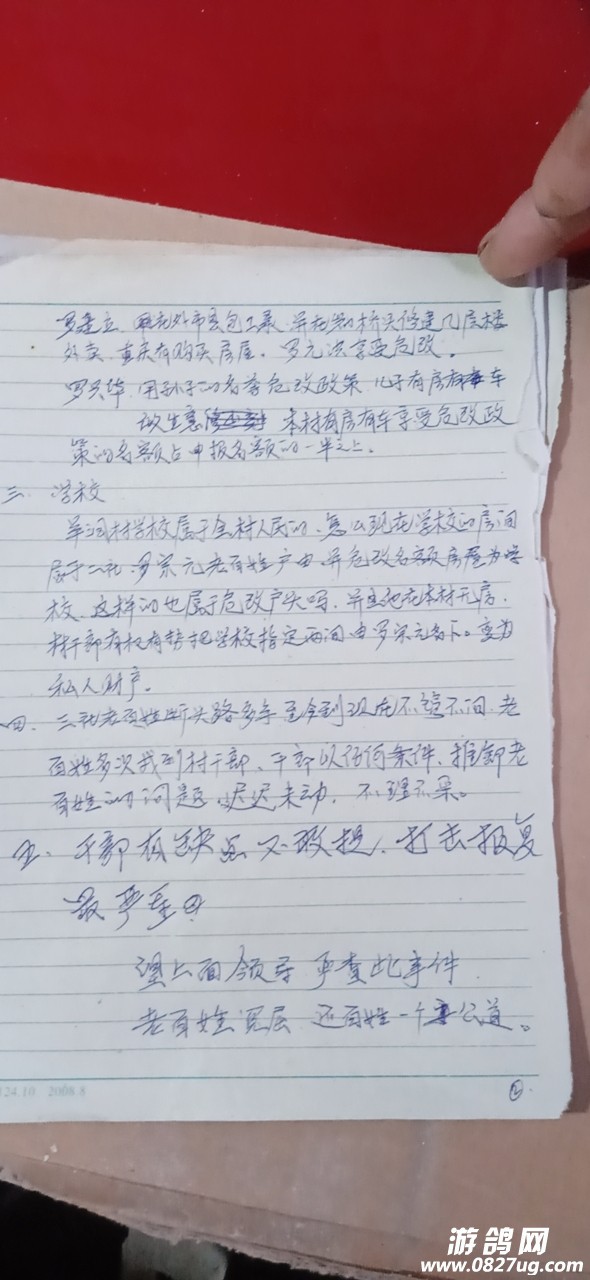 罗建立 在外市去包工程 并在 桥头修建几层楼
外卖 重庆有购买房屋。罗元洪享受危改。
罗兴华 用孙子的名义危改政策 儿子有房有车
做生意 本村有房有车享受危改政
策的名额占申报名额的一半之上。
三 学校
单洞村学校属于全村人民的、怎么现在学校的房间
属于二社 罗宗元老百姓户由 并危改名额 房屋为学
校、这样的也属于危改户头吗、并且他在本村无房、
村干部有权有势把学校指定两间由罗宗元名下。变为
私人财产。
四、三社老百姓断头路多年 至今到现在不管不问、老
百姓多次找到村干部、干部以任何条件、推卸老
百姓的问题、迟迟未动、不理不采。
五、干部有缺点不敢提、打击报复
最严重
望上面领导 严查此事件
老百姓 层 还百姓一个公道。
124.10 2008.8
②
游鸽网
www.0827ug.com